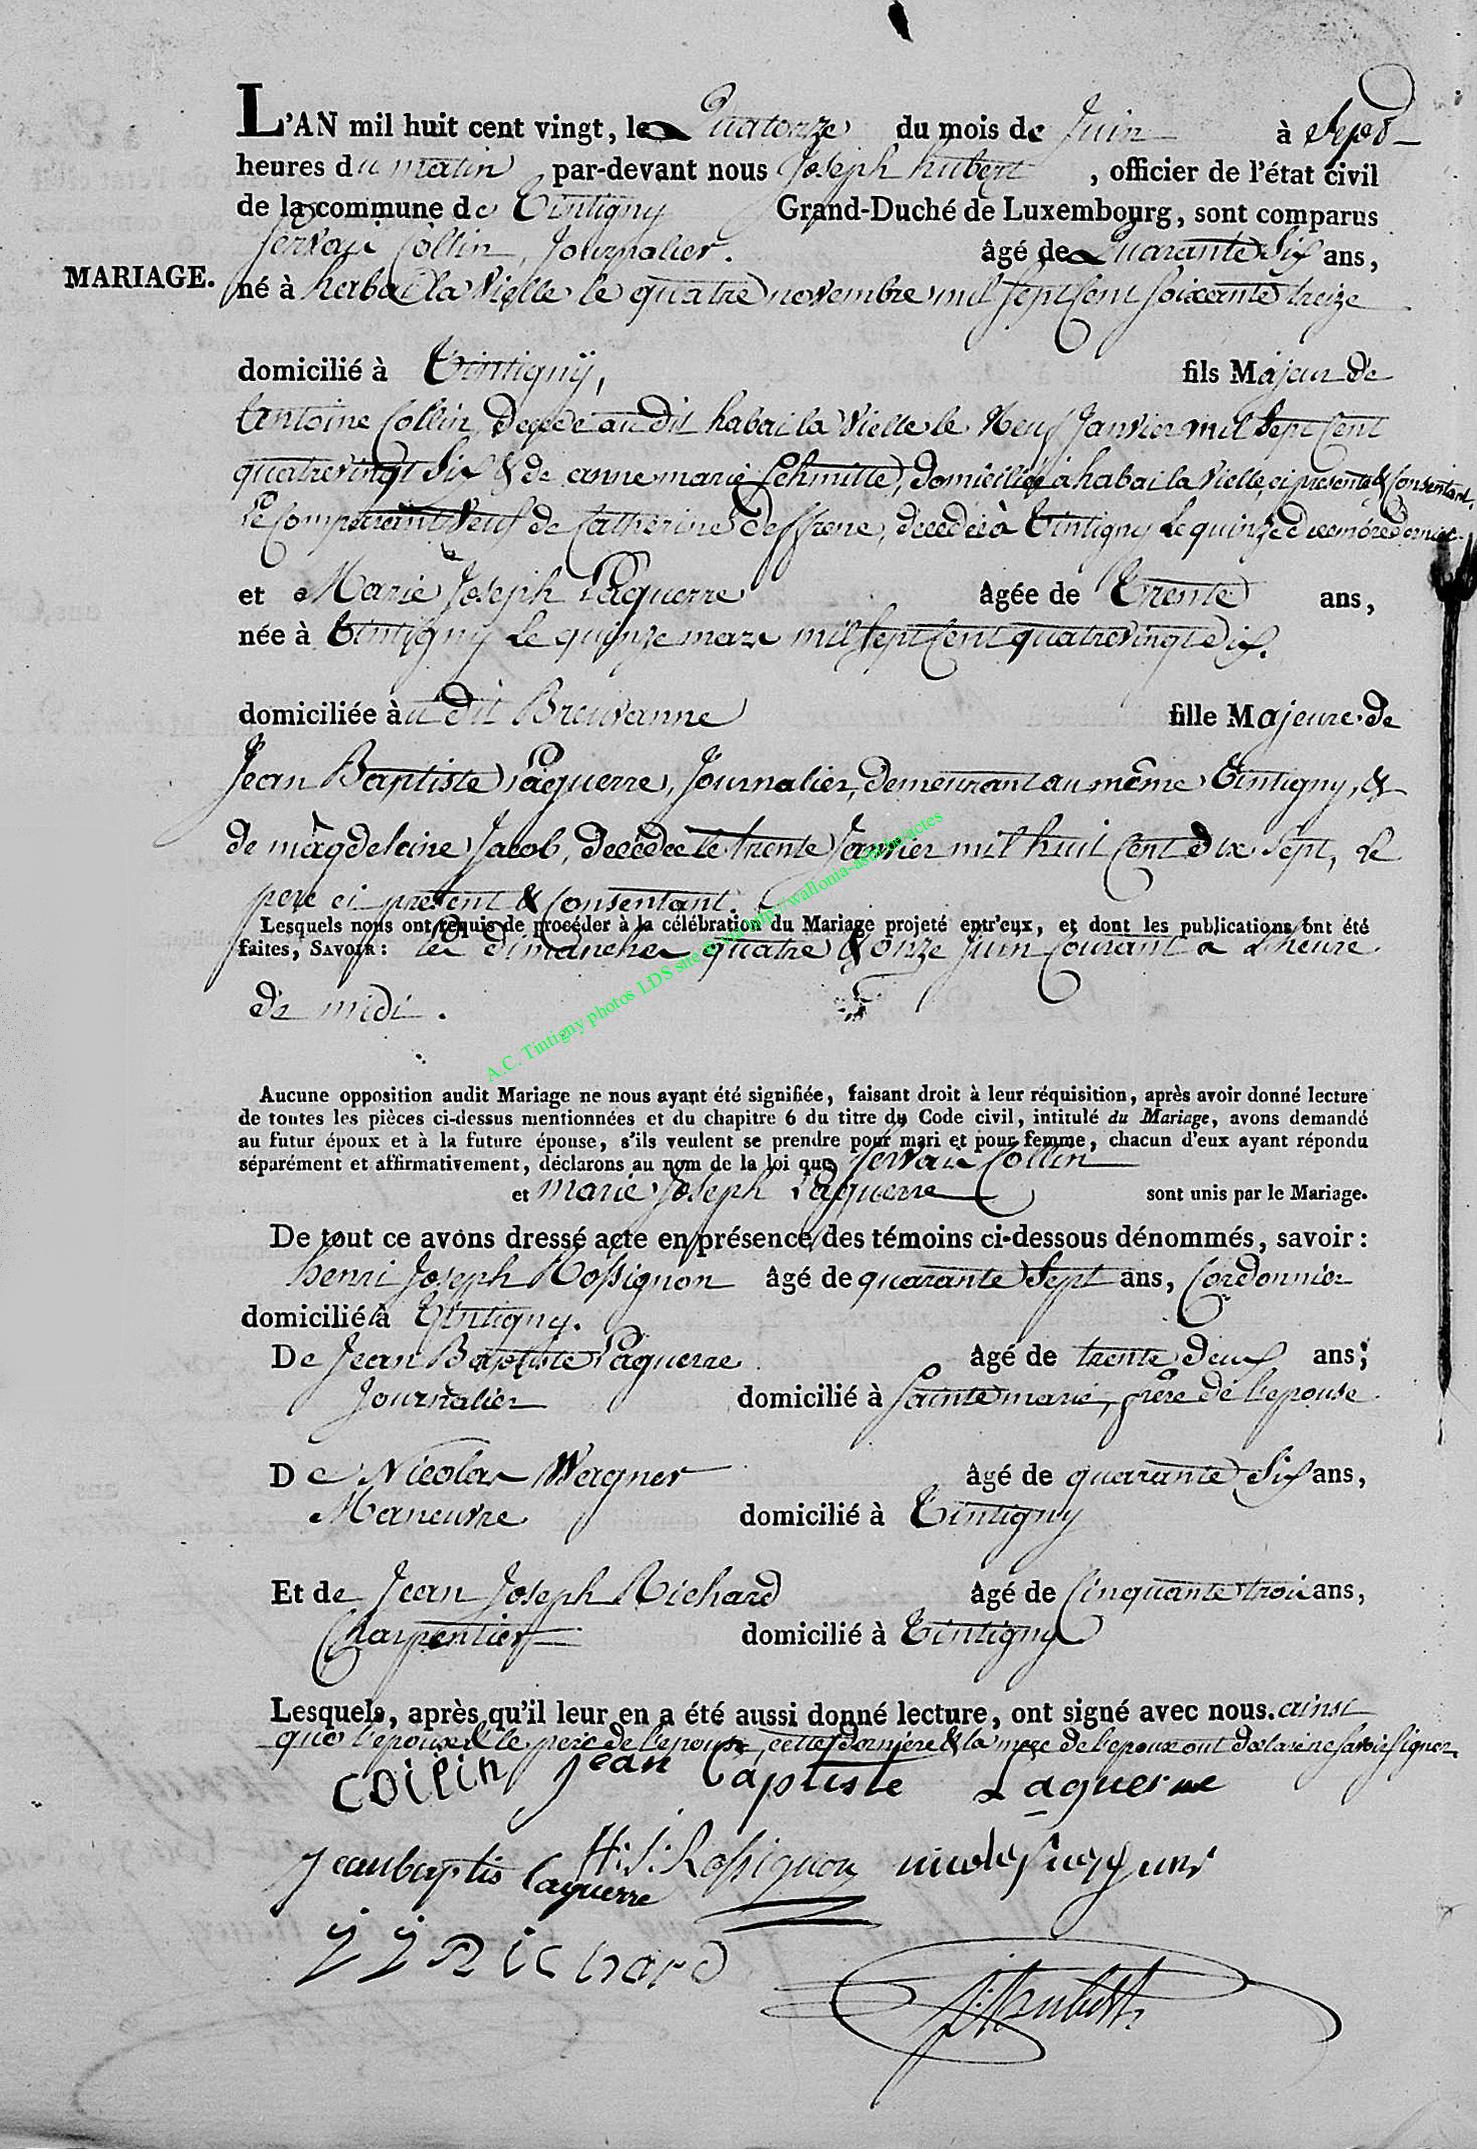 L'AN mil huit cent vingt, le Quatorze du mois de Juin à Sept
heures du matin par-devant nous Joseph hubert , officier de l'état civil
de la commune de Tintigny Grand-Duché de Luxembourg, sont comparus
Servais Collin, Journalier. âgé de Quarante Six ans,
MARIAGE.
né à habai la Vielle le quatre novembre mil Sept Cent Soixante treize
domicilié à Tintigny, fils Majeur de
Antoine Collin, Décédé au dit habai la Vielle le Neuf Janvier mil Sept Cent
quatrevingt Six & de anne marie Schmitte, domiciliée a habai la Vielle, ci presente & Consentant,
Le Comparant Veuf de Catherine deffrene, décédée à Tintigny Le quinze decembre dernier.
et Marie Joseph Laguerre âgée de Trente ans,
née à Tintigny Le quinze mars mil Sept Cent quatrevingt Dix.
domiciliée au dit Breuvanne fille Majeure de
Jean Baptiste Laguerre, Journalier, Demeurant au même Tintigny, &
de magdeleine Jacob, Décédée le trente Janvier mil huit Cent dix Sept, Le
pere ci present & Consentant.
Lesquels nous ont requis de procéder à la célébration du Mariage projeté entr'eux, et dont les publications ont été
faites, SAVOIR: les Dimanches quatre & onze Juin Courant a Lheure
de midi.
Aucune opposition audit Mariage ne nous ayant été signifiée, faisant droit à leur réquisition, après avoir donné lecture
de toutes les pièces ci-dessus mentionnées et du chapitre 6 du titre du Code civil, intitulé du Mariage, avons demandé
au futur époux et à la future épouse, s'ils veulent se prendre pour mari et pour femme, chacun d'eux ayant répondu
séparément et affirmativement, déclarons au nom de la loi que Servais Collin
et marie Joseph Laguerre sont unis par le Mariage.
De tout ce avons dressé acte en présence des témoins ci-dessous dénommés, savoir:
henri Joseph Rossignon âgé de quarante Sept ans, Cordonnier
domicilié à Tintigny.
De Jean Baptiste Laguerre âgé de trente deux ans;
Journalier domicilié à Sainte marie, frère de l'epouse.
De Nicolas Wagner âgé de quarante Six ans,
Maneuvre domicilié à Tintigny
Et de Jean Joseph Richard âgé de Cinquante trois ans,
Charpentier domicilié à Tintigny
Lesquels, après qu'il leur en a été aussi donné lecture, ont signé avec nous. ainsi
que l'epoux & le pere de l'epouse, cette derniere & la mere de l'epoux ont déclaré ne savoir signer.
COllin Jean Baptiste Laguerre
Jeanbaptis Laguerre H: J: Rossignon nicolas wagner
J J Richard J. Hubert
A.C. Tintigny photos LDS site © via http://wallonia-asbl.be/actes